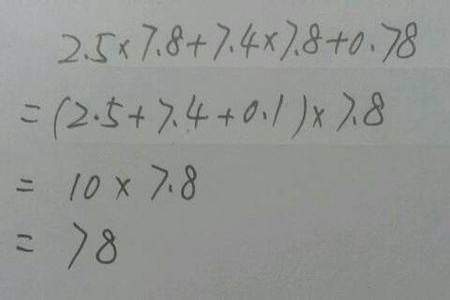 2.5×7.8+7.4×7.8+0.78
=(2.5+7.4+0.1)×7.8
= 10×7.8
= 78